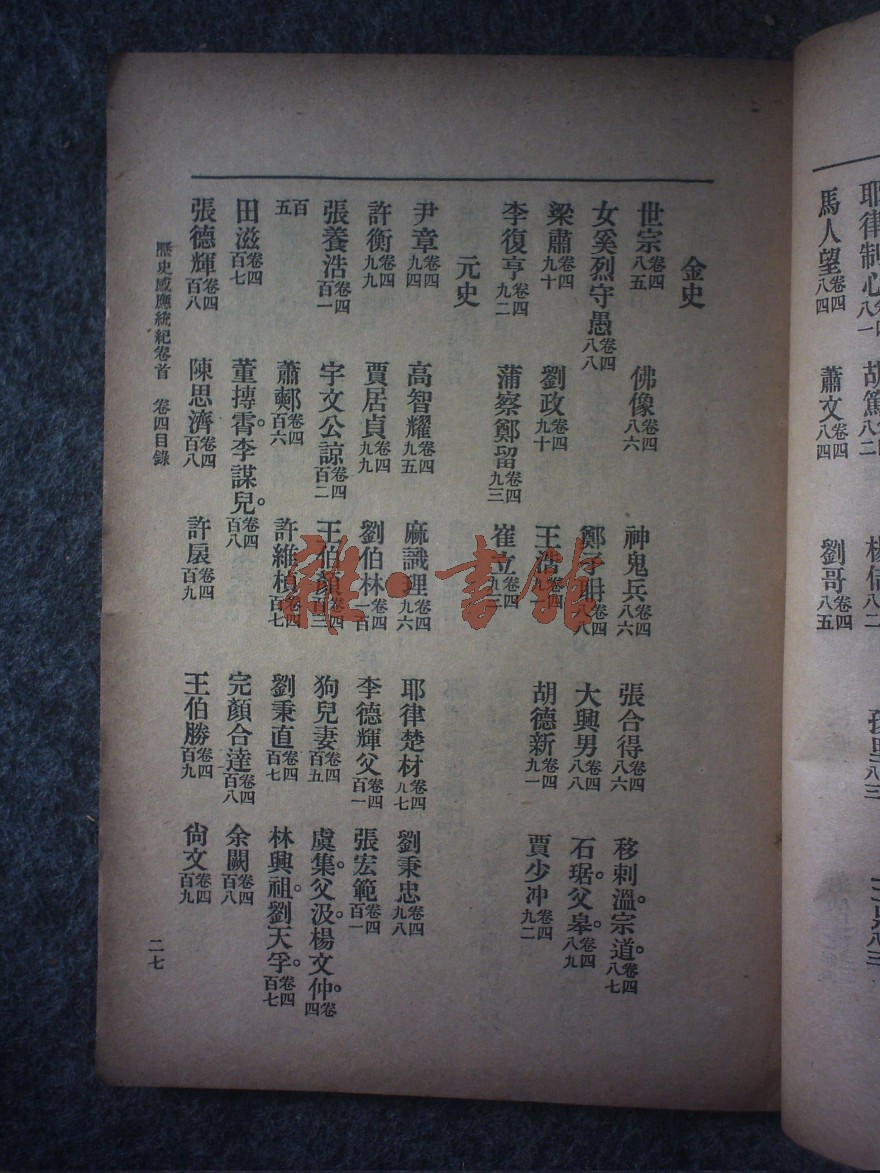 耶律制心卷四八一
馬人望卷四八四 蕭文卷四八四 劉哥卷四八五
金史
世宗卷四八五 佛像卷四八六 神鬼兵卷四八六 張合得卷四八六 移剌溫。宗道。卷四八七
女奚烈守愚卷四八八 鄭子聃卷四八八 大興男卷四八八 石琚。父皋。卷四八九
梁肅卷四九十 劉政卷四九十 王浩卷四九十 胡德新卷四九一 賈少冲卷四九二
李復亨卷四九二 蒲察鄭留卷四九三 崔立卷四九三
元史
尹章卷四九四 高智耀卷四九五 麻識理卷四九六 耶律楚材卷四九七 劉秉忠卷四九八
許衡卷四九九 賈居貞卷四九九 劉伯林卷四一百 李德輝父卷四百一 張宏範卷四百一
張養浩卷四百一 宇文公諒卷四百二 王伯顏卷四百三 狗兒妻卷四百五 虞集。父汲。楊文仲。卷四
百五 蕭㪺卷四百六 許維楨卷四百七 劉秉直卷四百七 林興祖。劉天孚。卷四百七
田滋卷四百七 董摶霄。李謀兒。卷四百八 完顏合達卷四百八 余闕卷四百八
張德輝卷四百八 陳思濟卷四百八 許扆卷四百九 王伯勝卷四百九 尙文卷四百九
歷史感應統紀卷首 卷四目錄 二七
雜·書館